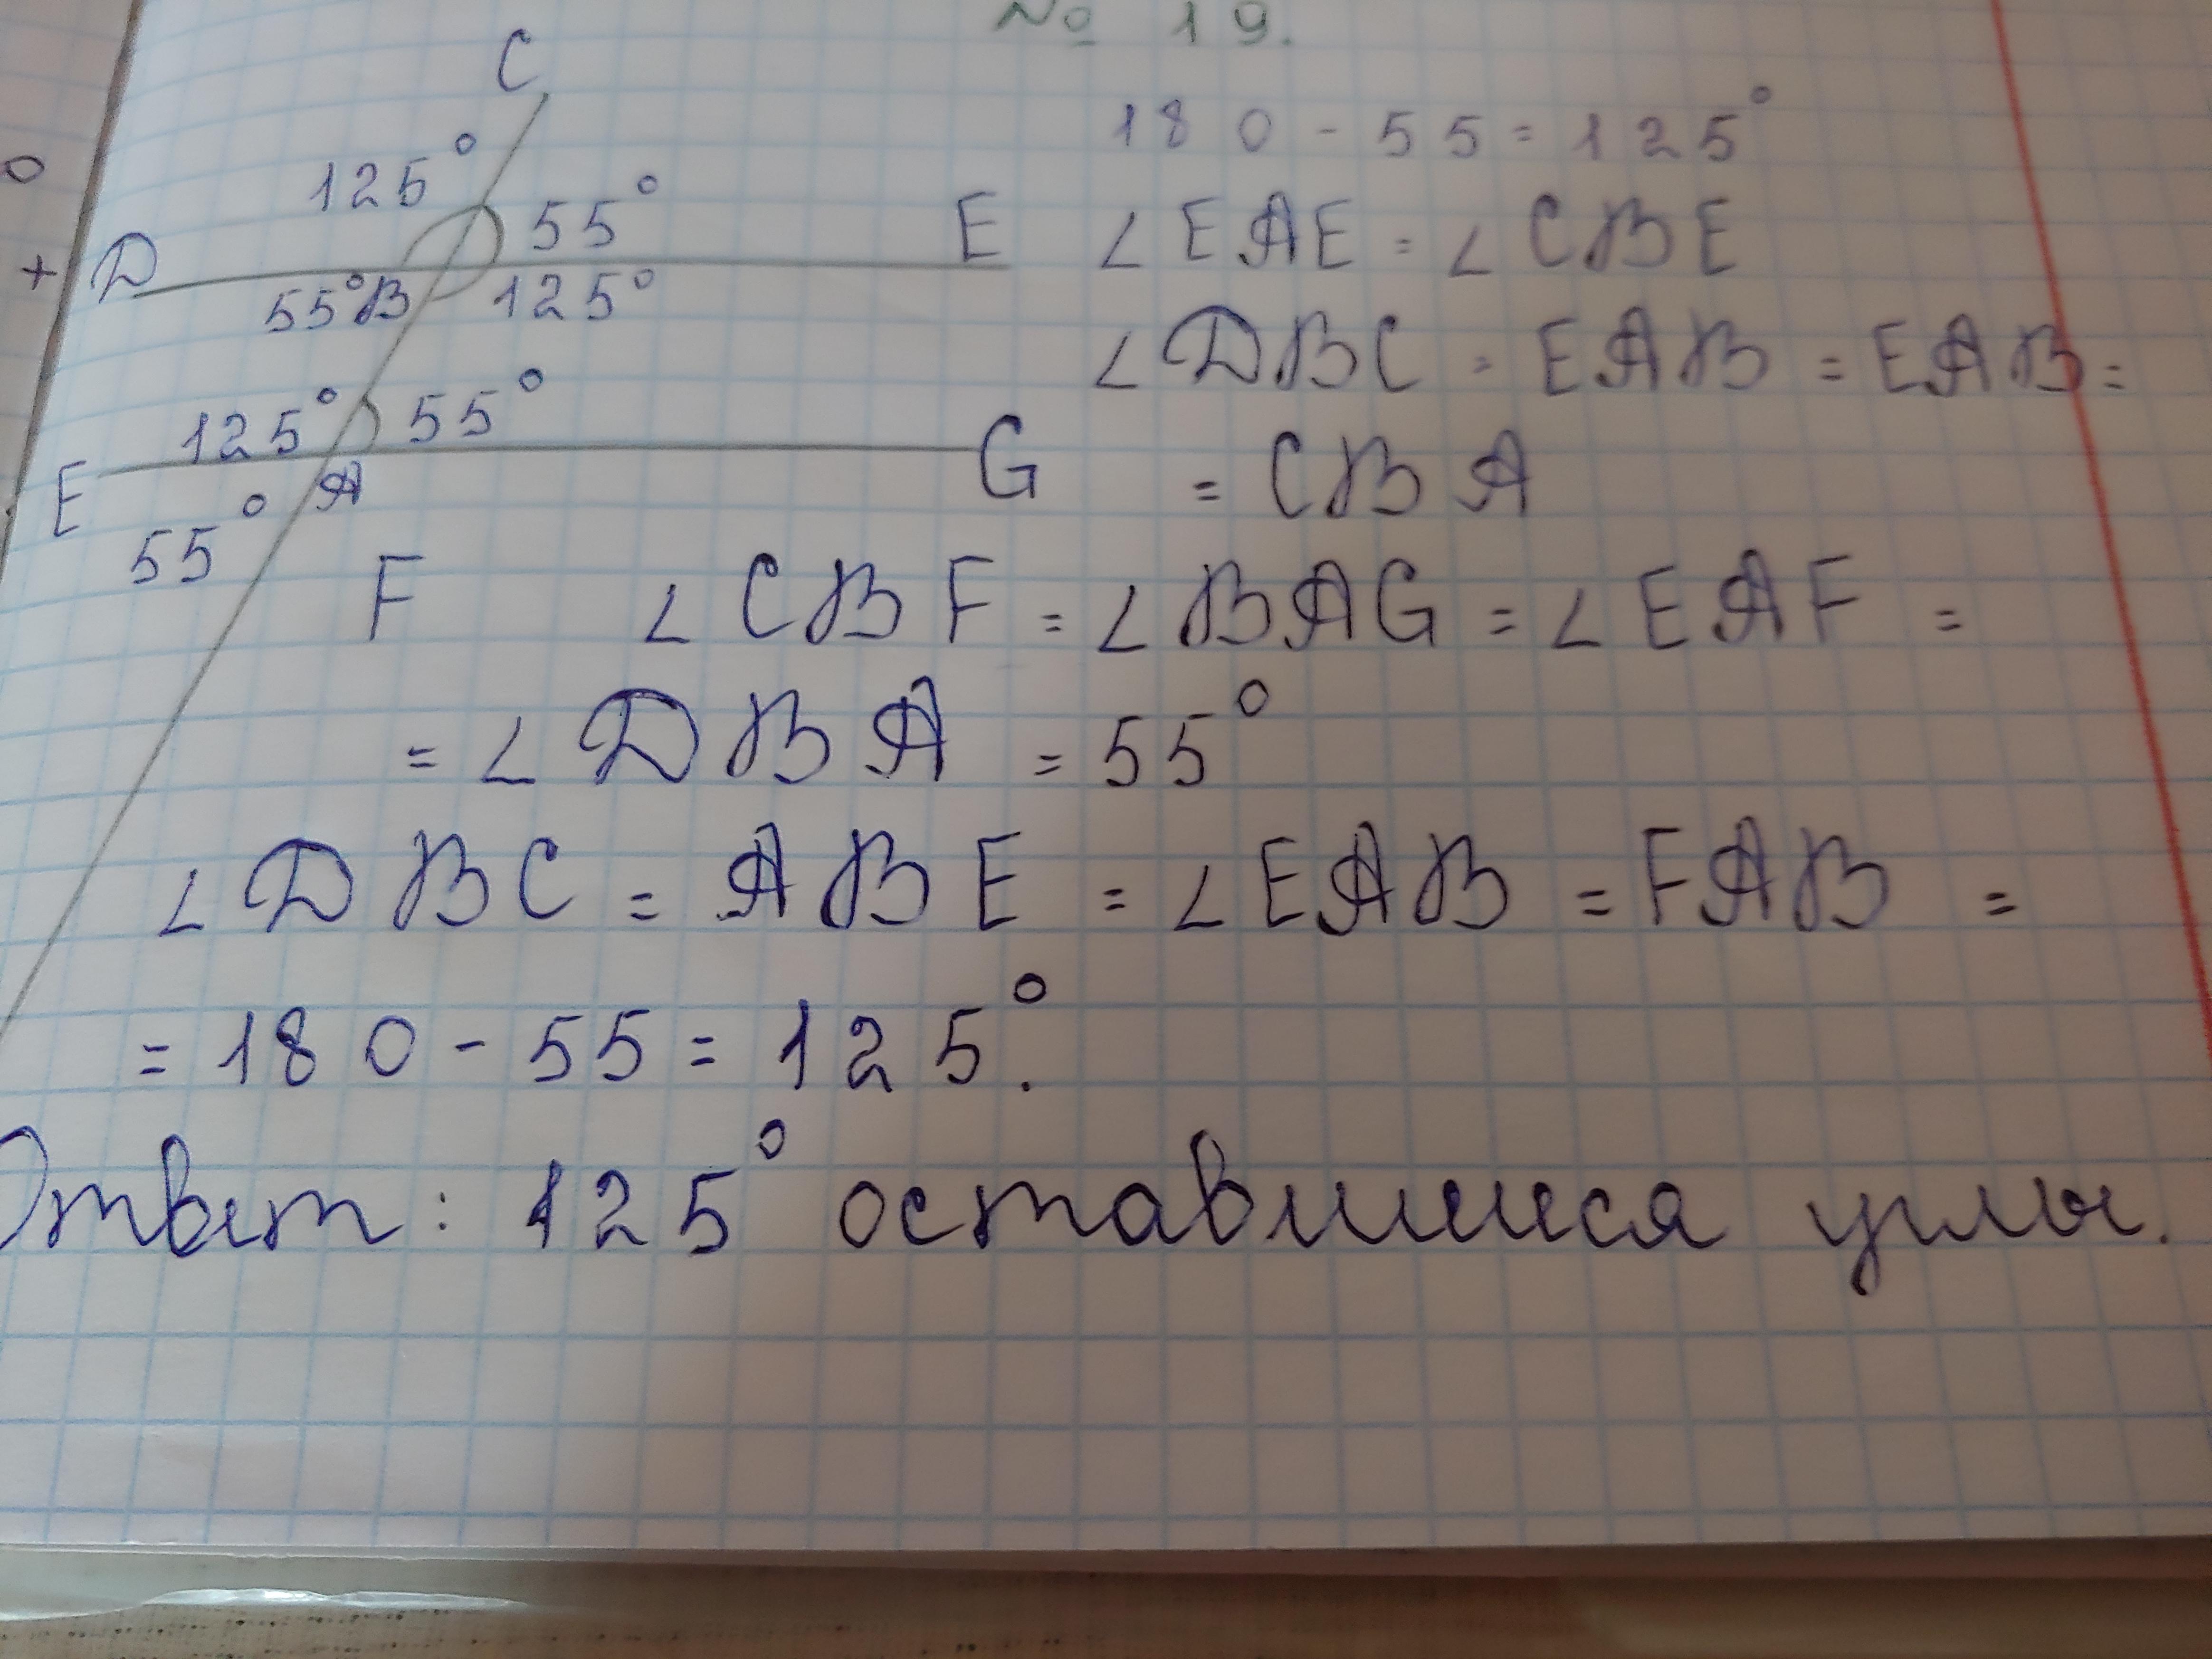 № 19.
C
125° 55°
D E
55° B 125°
125° 55°
E A G
55°
F
180 - 55 = 125°
∠EAE = ∠CBE
∠DBC = EAB = EAB =
= CBA
∠CBF = ∠BAG = ∠EAF =
= ∠DBA = 55°
∠DBC = ABE = ∠EAB = FAB =
= 180 - 55 = 125°.
Ответ: 125° оставшиеся углы.